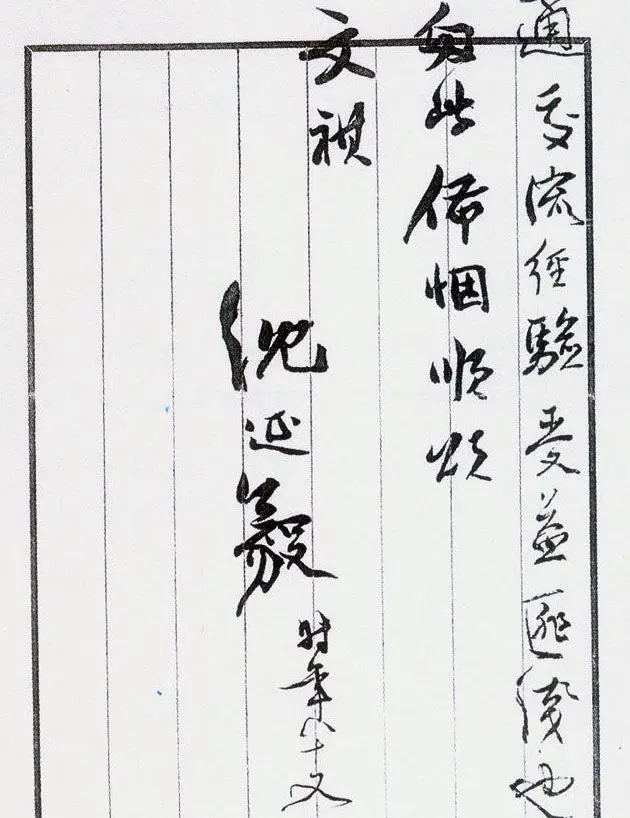 通交流經驗受益匪淺也
匆此佈悃順頌
文祺
倪延毅
時年八十又